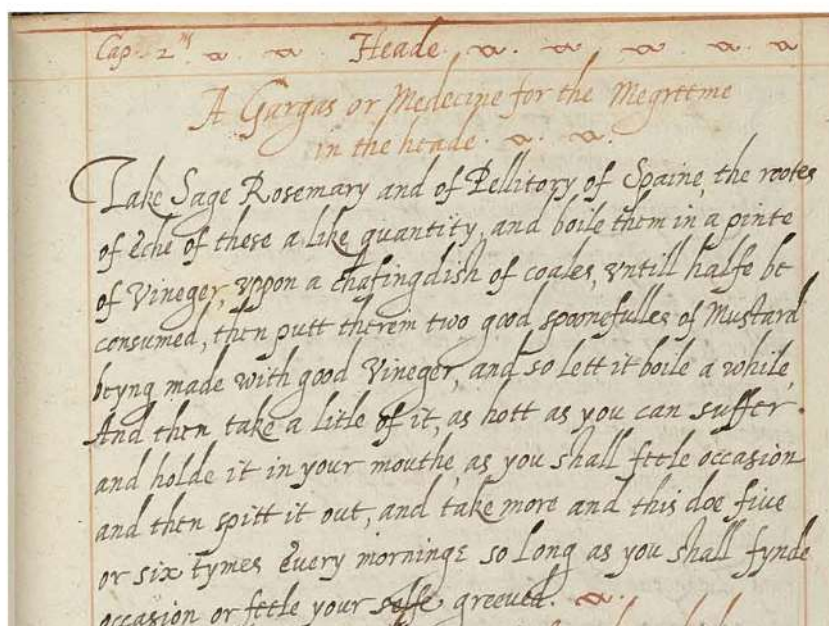 Cap. 2m Heade
A Gargas or Medecine for the Megreeme
in the heade.
Take Sage Rosemary and of Pellitory of Spaine, the rootes
of Eche of these a like quantity, and boile them in a pinte
of Vineger, vppon a chafingdish of coales, vntill halfe be
consumed, then putt therein two good spoonefulles of Mustard
beyng made with good Vineger, and so lett it boile a while,
And then take a litle of it, as hott as you can suffer.
and holde it in your mouthe, as you shall feele occasion
and then spitt it out, and take more and this doe five
or six tymes Every morninge so long as you shall fynde
occasion or feele your selfe greeved.